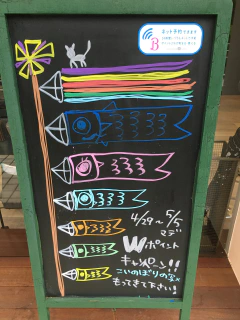 ネット予約できます
B
4/29～5/5
マデ
Wポイント
キャンペーン!!
こいのぼりの写真
もってきて下さい!